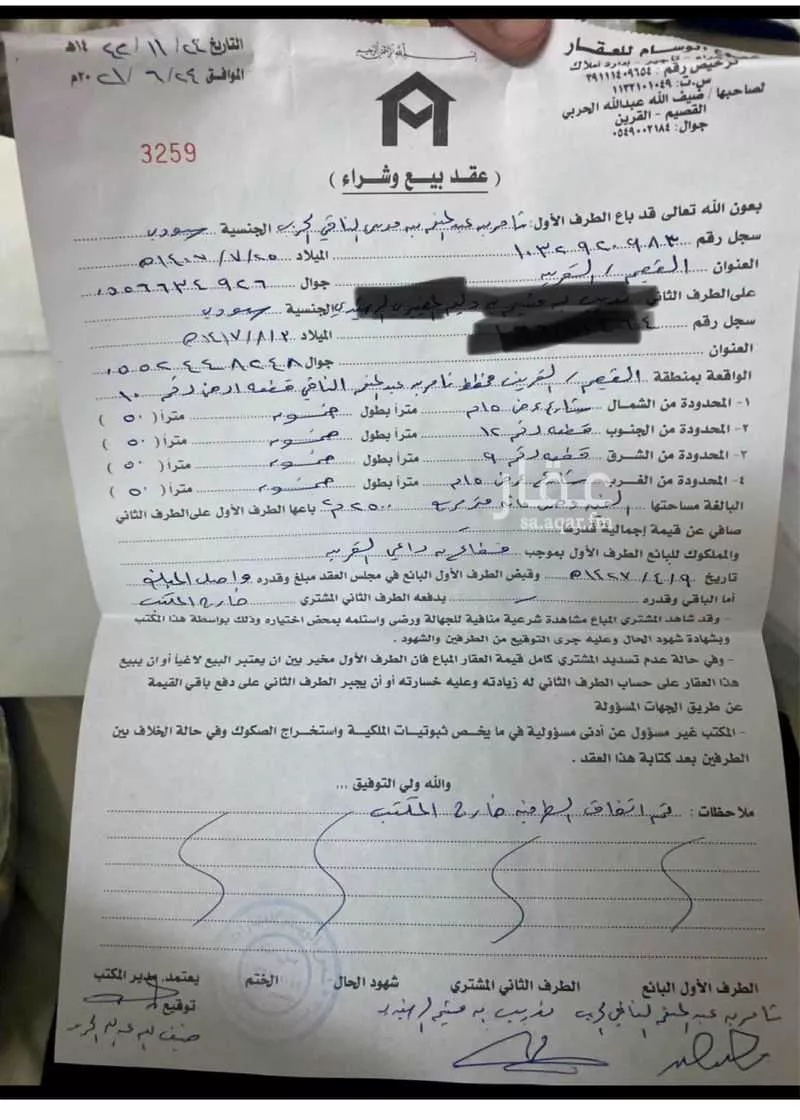 وسام للعقار
ترخيص رقم : ٣٩١١١٤٠٩٦٥٤
س.ت: ١١٣٢١٠١٠٤٩
لصاحبها / ضيف الله عبدالله الحربي
القصيم - القرين
جوال: ٠٥٤٩٠٠٢١٨٤
التاريخ ٢٤ / ١١ / ١٤٤٢هـ
الموافق ٢٤ / ٦ / ٢٠٢١م
3259
( عقد بيع وشراء )
بعون الله تعالى قد باع الطرف الأول: ثامر بن عبدالمنعم بن الناقي الحربي الجنسية سعودي
سجل رقم ١٠٣٢٩٢٠٩٨٣ الميلاد ١٤٠٧/٧/٢٥هـ
العنوان القصيم / القرين جوال ٠٥٥٦٦٣٤٩٢٦
على الطرف الثاني الجنسية سعودي
سجل رقم الميلاد ١٤١٧/٨/٢هـ
العنوان جوال ٠٥٥٢٤٤٨٢٤٨
الواقعة بمنطقة القصيم / القرين مخطط ثامر بن عبدالمنعم الناقي قطعة ارض رقم ١٠
١- المحدودة من الشمال شارع عرض ١٥م متراً بطول خمسون متراً ( ٥٠ )
٢- المحدودة من الجنوب قطعة رقم ١٢ متراً بطول خمسون متراً ( ٥٠ )
٣- المحدودة من الشرق قطعة رقم ٩ متراً بطول خمسون متراً ( ٥٠ )
٤- المحدودة من الغرب شارع عرض ١٥م متراً بطول خمسون متراً ( ٥٠ )
البالغة مساحتها ٢٥٠٠م٢ باعها الطرف الأول على الطرف الثاني
صافي عن قيمة إجمالية قدرها
والمملوك للبائع الطرف الأول بموجب القرين
تاريخ ١٤٢٧/٤/٩هـ وقبض الطرف الأول البائع في مجلس العقد مبلغ وقدره واصل المبلغ
أما الباقي وقدره يدفعه الطرف الثاني المشتري خارج المكتب
- وقد شاهد المشتري المباع مشاهدة شرعية منافية للجهالة ورضى واستلمه بمحض اختياره وذلك بواسطة هذا المكتب
وبشهادة شهود الحال وعليه جرى التوقيع من الطرفين والشهود .
- وفي حالة عدم تسديد المشتري كامل قيمة العقار المباع فان الطرف الأول مخير بين ان يعتبر البيع لاغياً أو ان يبيع
هذا العقار على حساب الطرف الثاني له زيادته وعليه خسارته أو أن يجبر الطرف الثاني على دفع باقي القيمة
عن طريق الجهات المسؤولة
- المكتب غير مسؤول عن أدنى مسؤولية في ما يخص ثبوتيات الملكية واستخراج الصكوك وفي حالة الخلاف بين
الطرفين بعد كتابة هذا العقد .
والله ولي التوفيق ...
ملاحظات : تم اتفاق الطرفين خارج المكتب
الطرف الأول البائع
الطرف الثاني المشتري
شهود الحال
الختم
يعتمد. مدير المكتب
توقيع
عقار
sa.aqar.fm